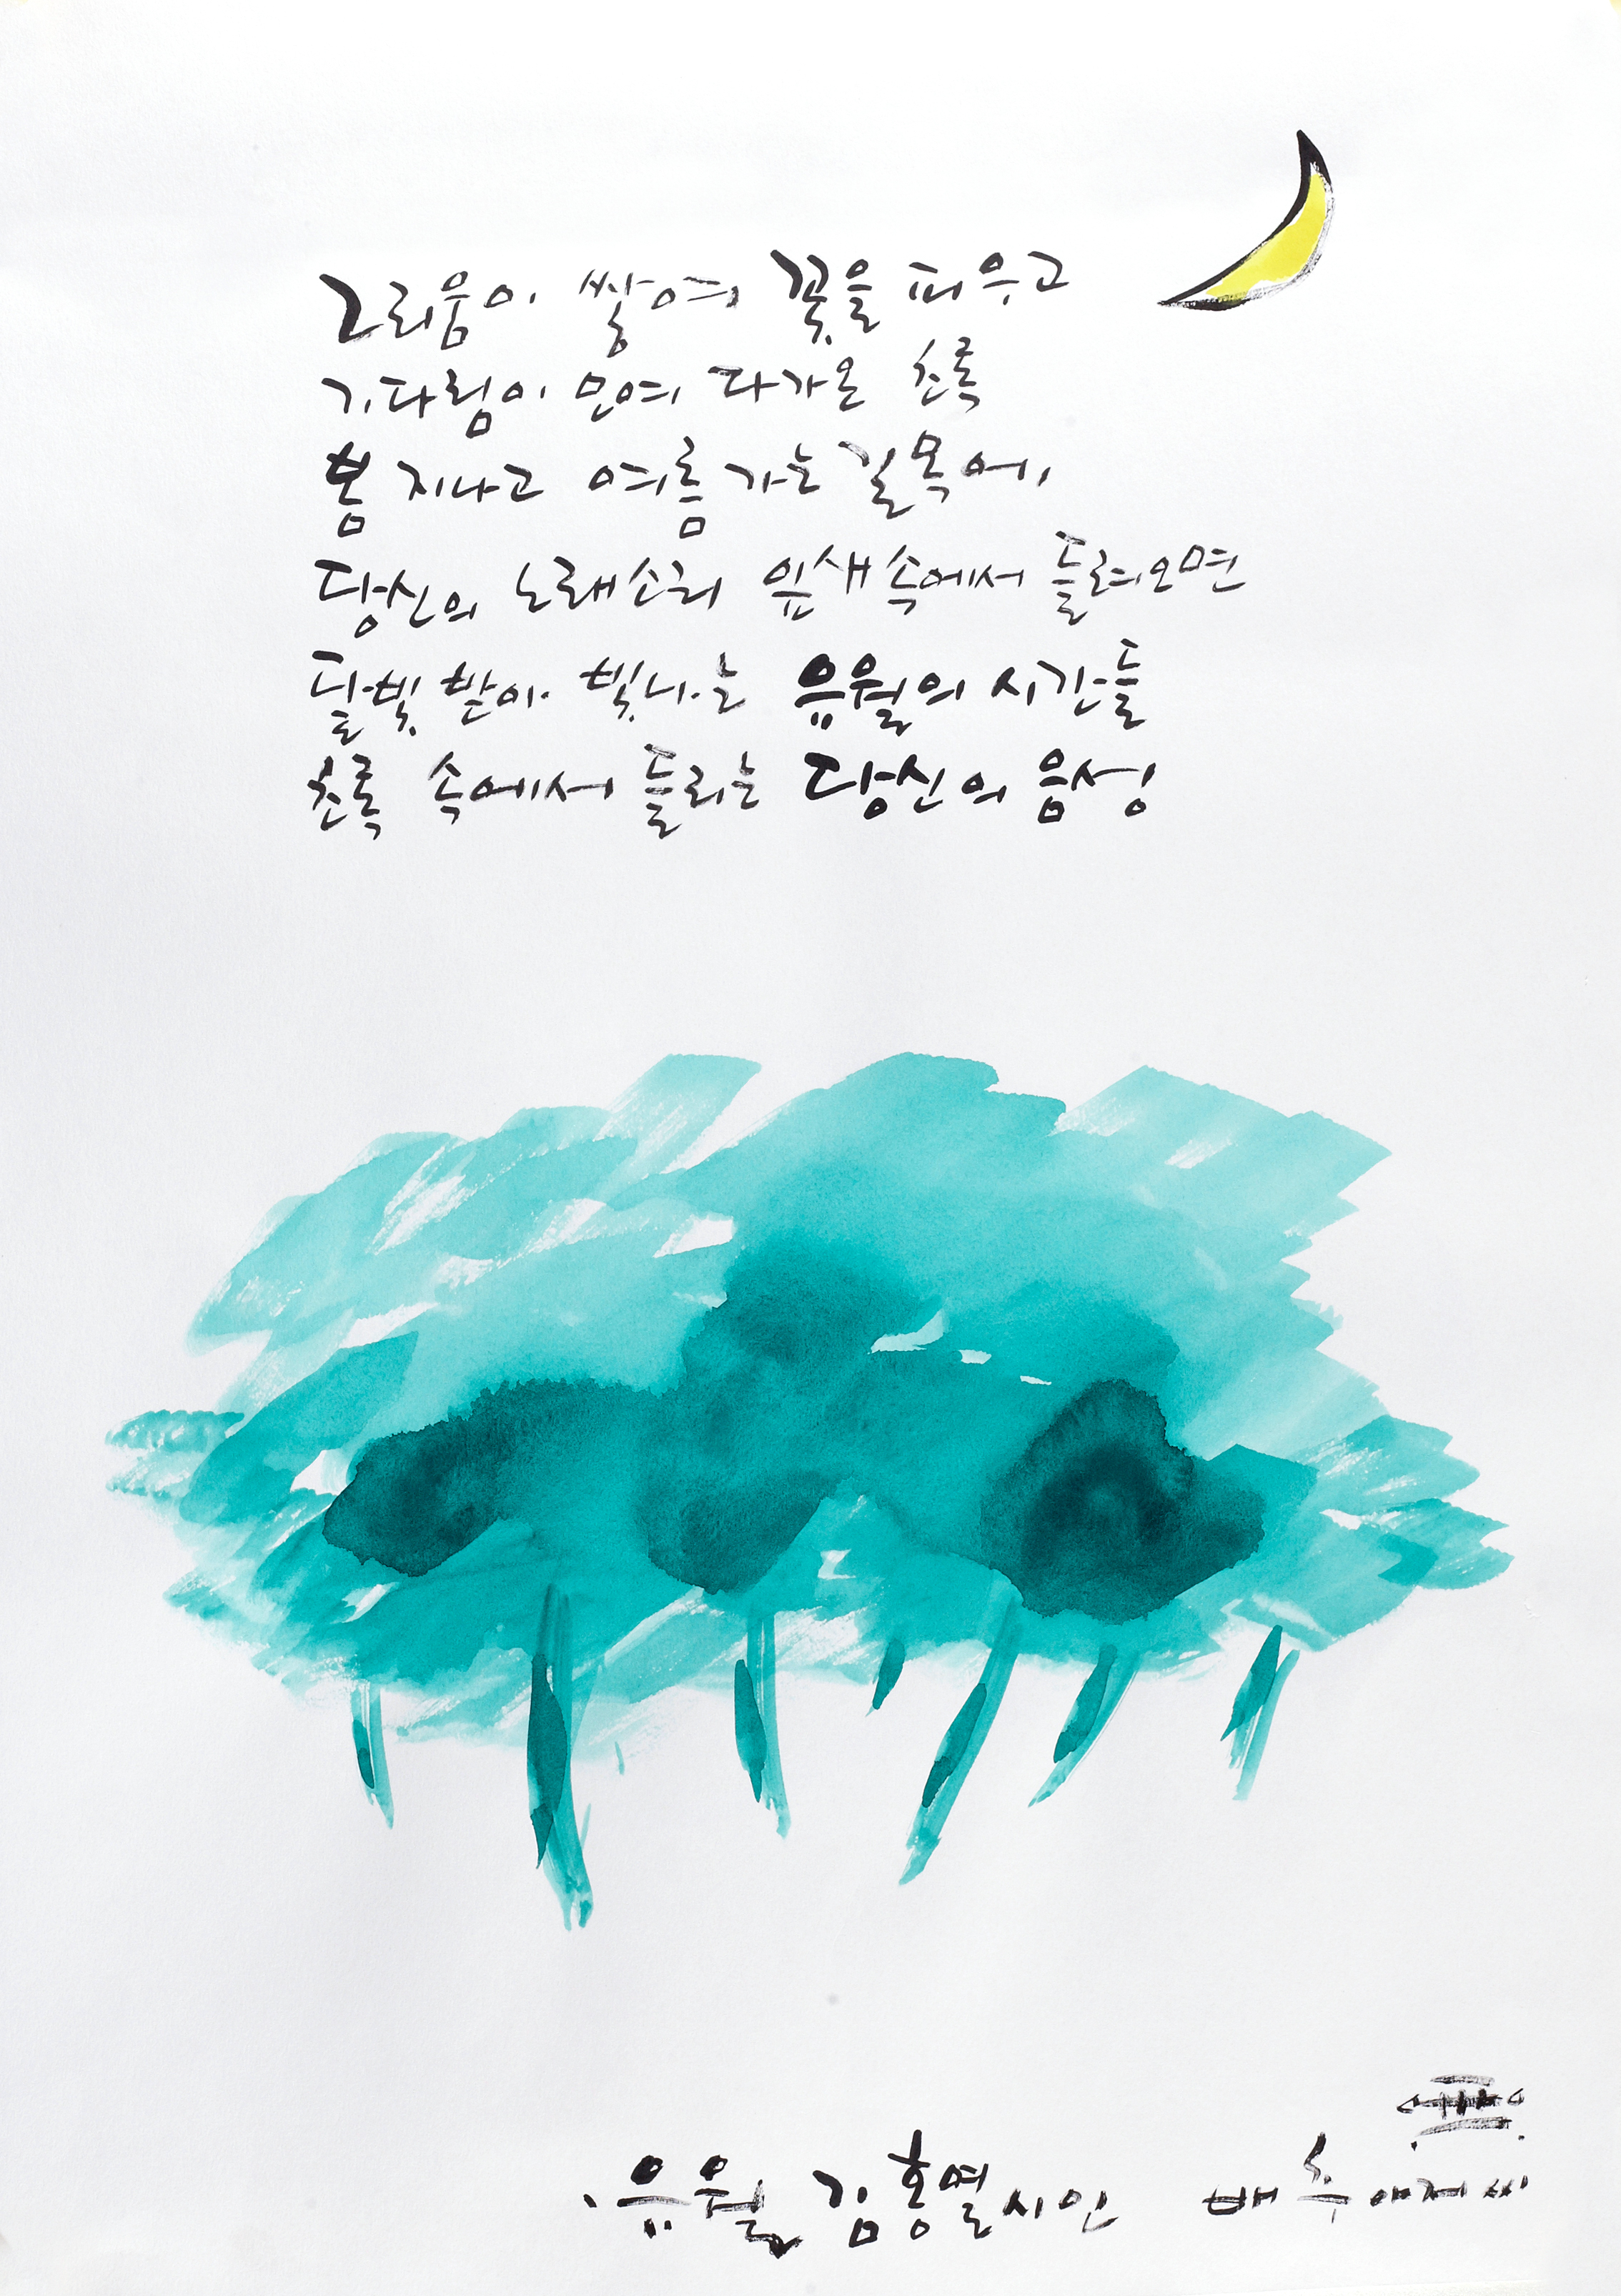 그리움이 쌓여 꽃을 피우고
기다림이 모여 다가온 초록
봄 지나고 여름 가는 길목에
당신의 노래소리 잎새 속에서 들려오면
달빛 받아 빛나는 유월의 시간들
초록 속에서 들리는 당신의 음성
유월 김홍열 시인 배추